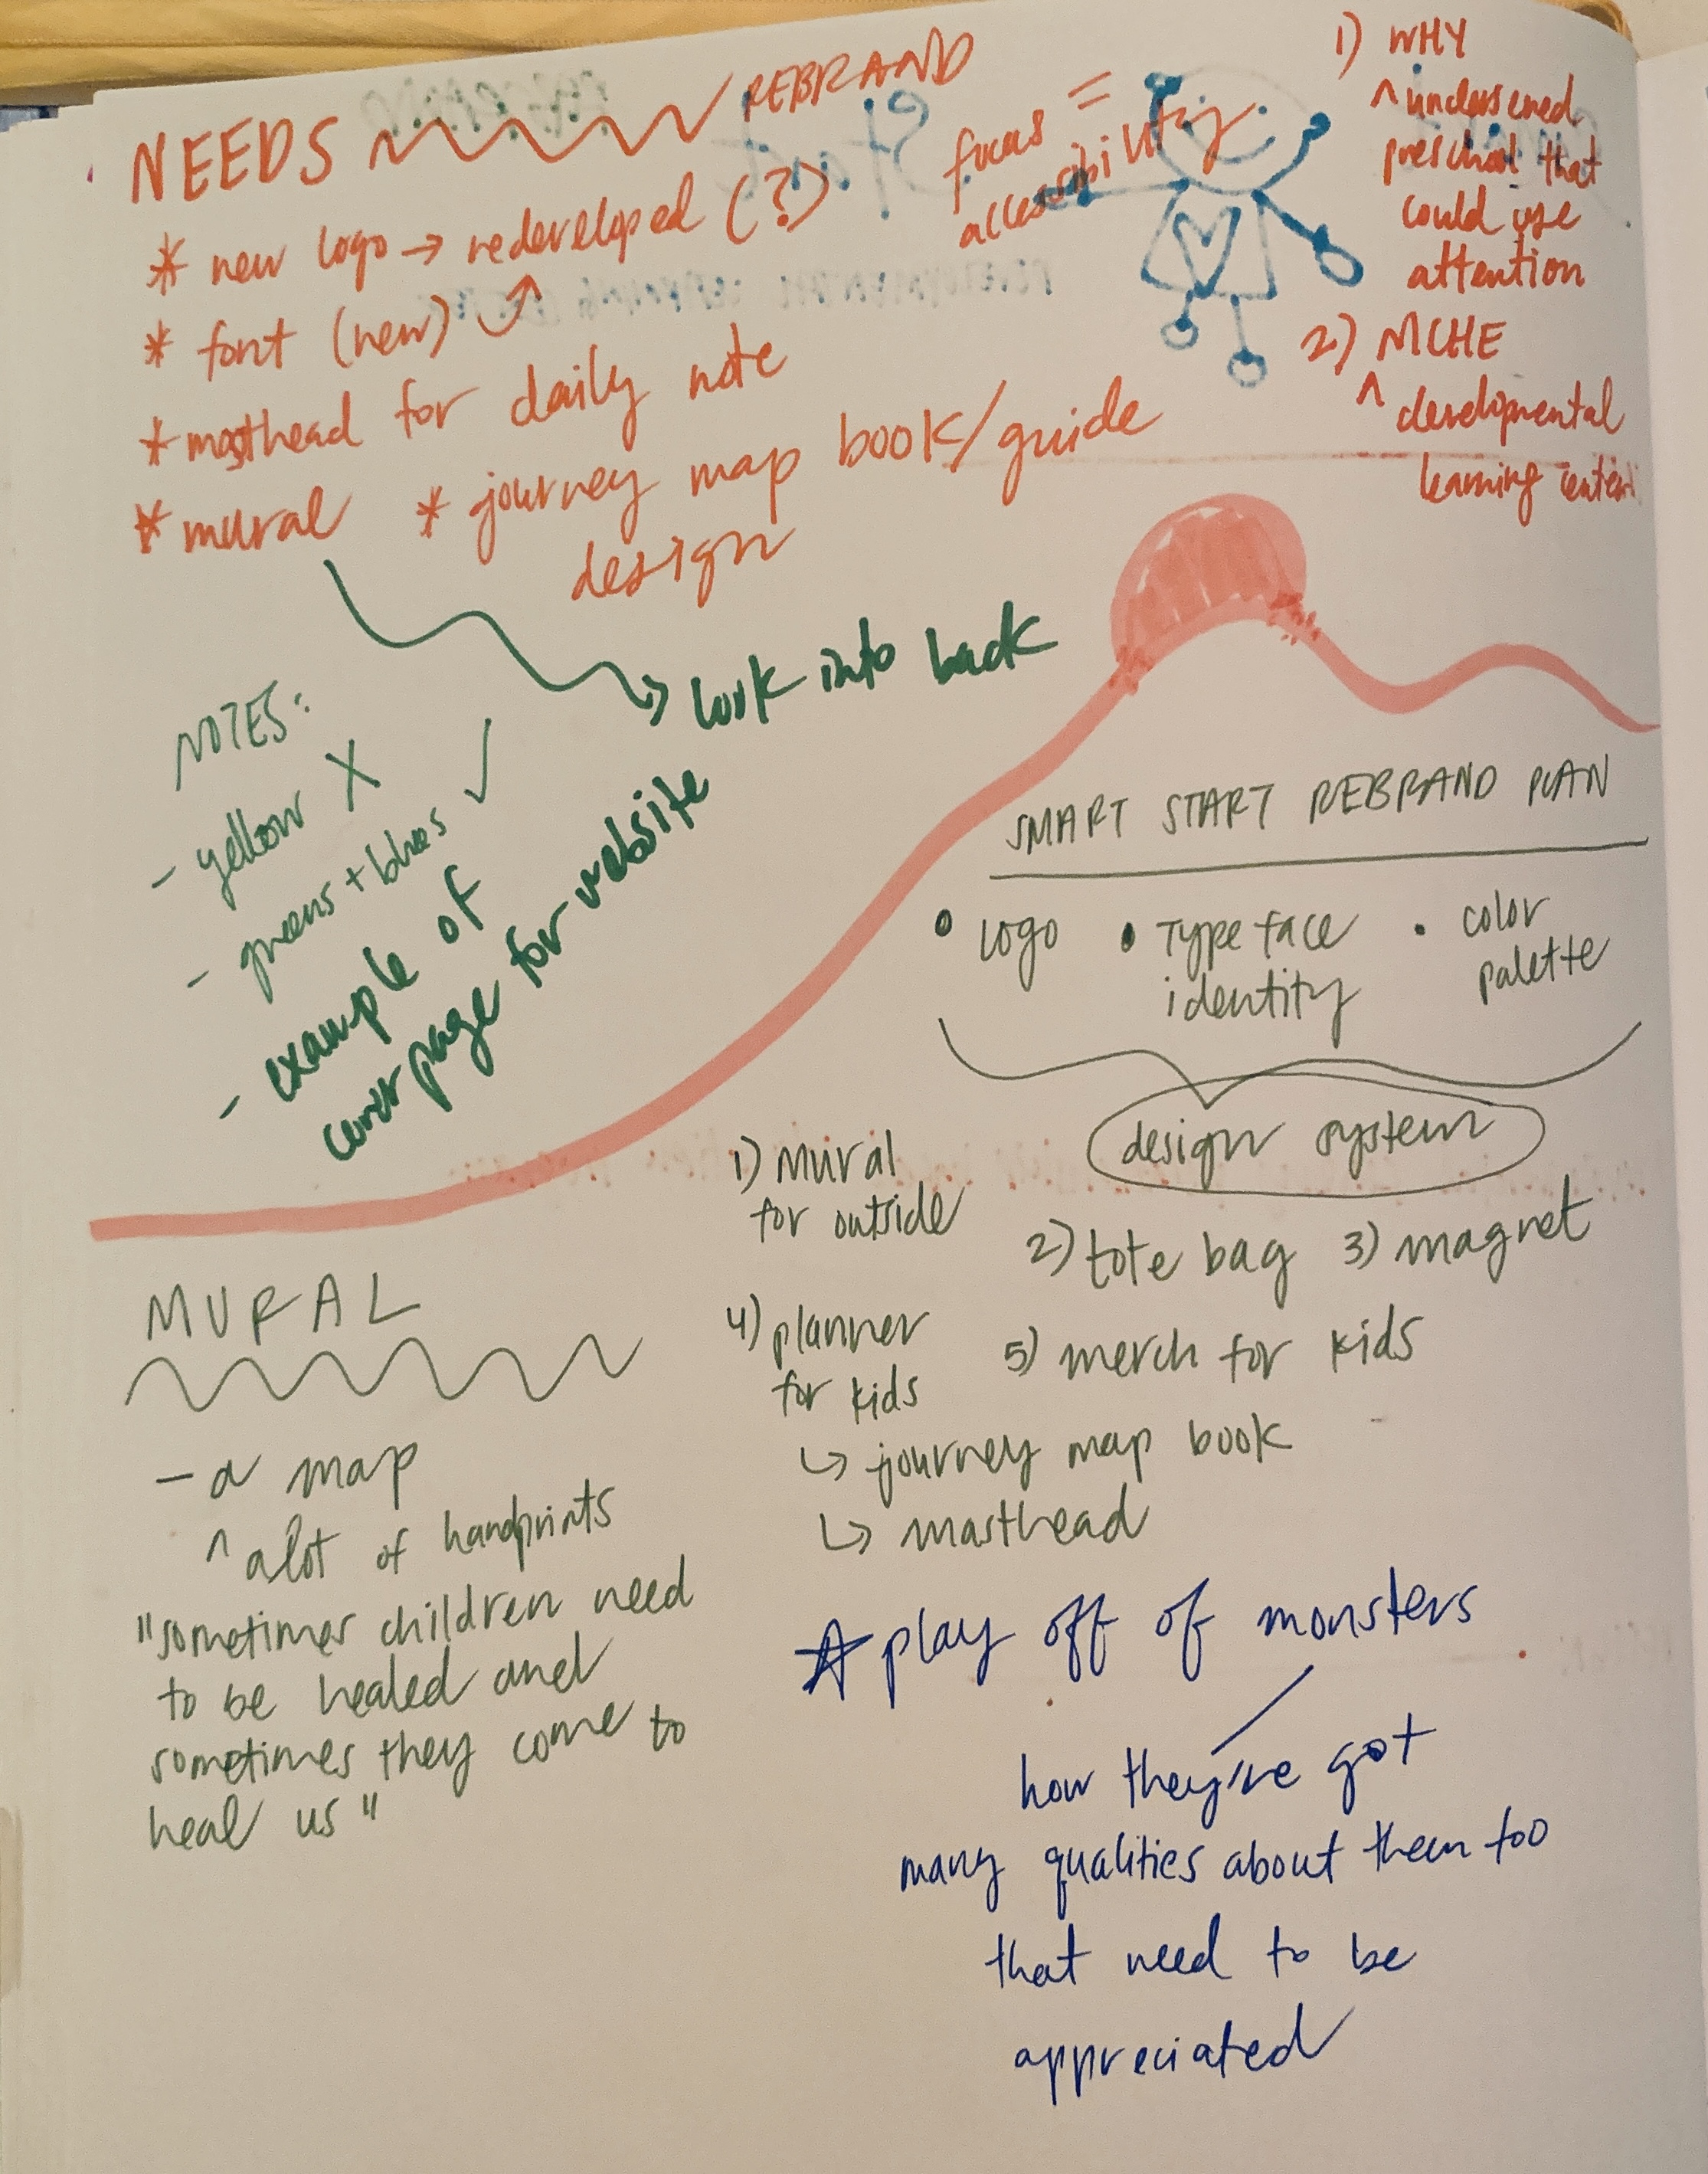 NEEDS REBRAND
* new logo → redeveloped (?)
* font (new)
* masthead for daily note
* mural * journey map book/guide
design
focus =
accessibility
1) WHY
^ underserved
preschool that
could use
attention
2) NICHE
^ developmental
learning center
→ look into back
NOTES:
- yellow X
- greens + blues ✓
- example of
cover page for website
SMART START REBRAND PLAN
• logo • Typeface • color
identity palette
design system
1) mural
for outside
2) tote bag 3) magnet
4) planner
for kids
5) merch for kids
↳ journey map book
↳ masthead
MURAL
- a map
^ alot of handprints
"sometimes children need
to be healed and
sometimes they come to
heal us"
☆ play off of monsters
how they've got
many qualities about them too
that need to be
appreciated